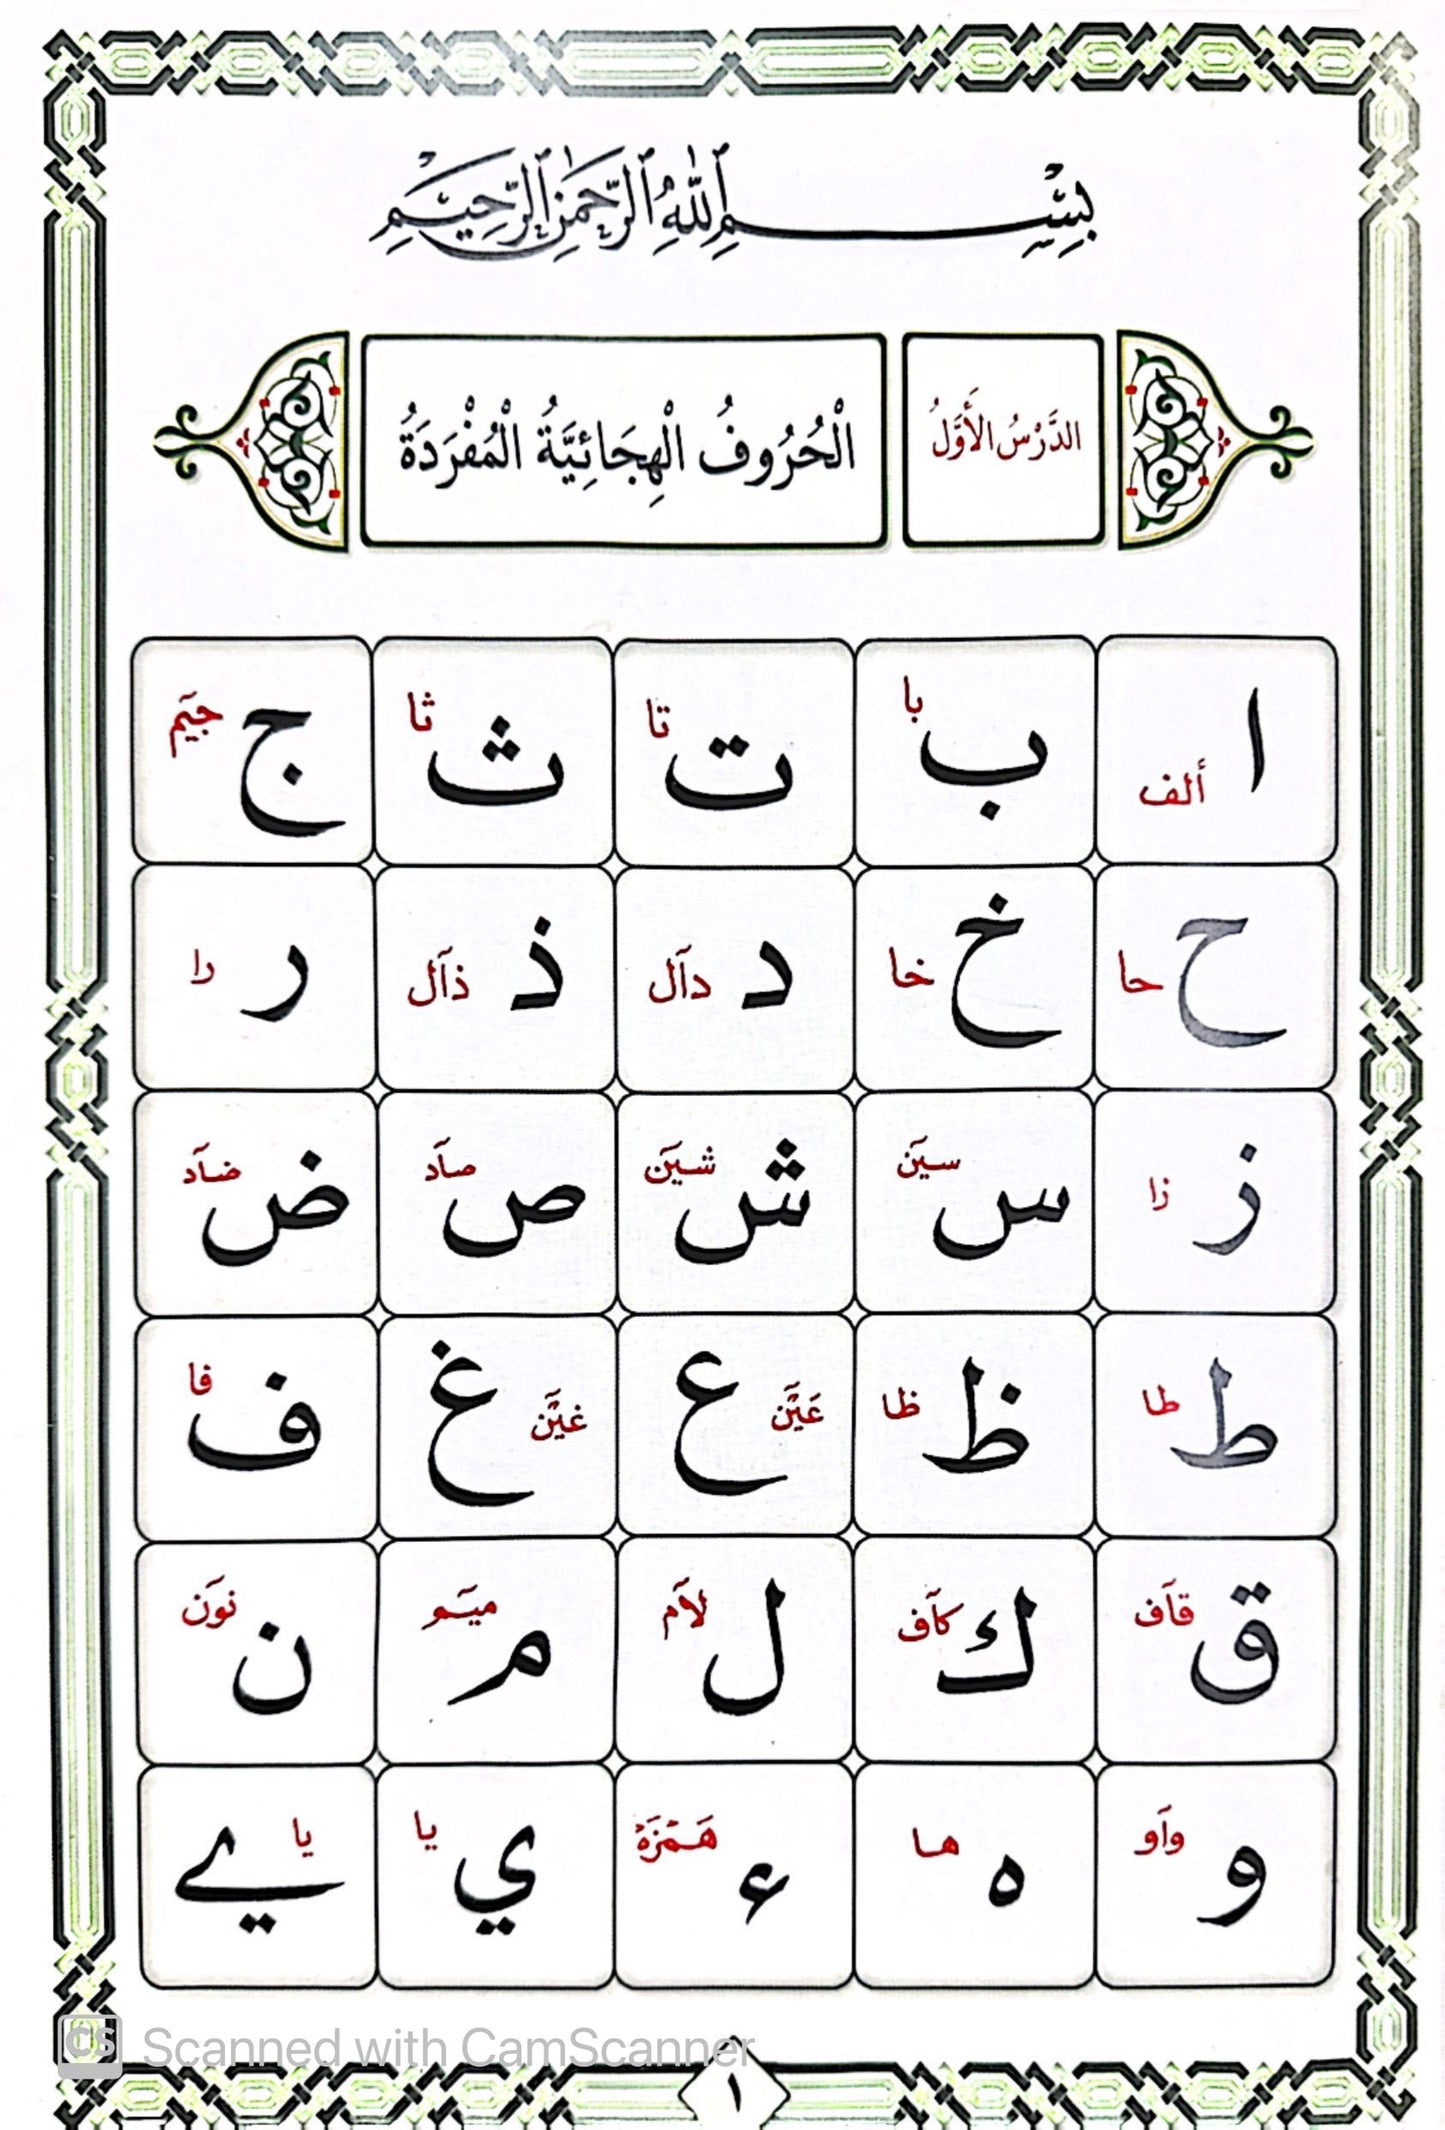 بِسْمِ ٱللَّهِ ٱلرَّحْمَٰنِ ٱلرَّحِيمِ
الدَّرْسُ الْأَوَّلُ
الْحُرُوفُ الْهِجَائِيَّةُ الْمُفْرَدَةُ
ا ألف ب با ت تا ث ثا ج جيٓم
ح حا خ خا د دآل ذ ذآل ر را
ز زا س سيٓن ش شيٓن ص صآد ض ضآد
ط طا ظ ظا ع عَيٓن غ غيٓن ف فا
ق قآف ك كآف ل لآم م ميٓم ن نوٓن
و وآو ه ها ء هَمْزَةْ ي يا ے يا
CS Scanned with CamScanner
١